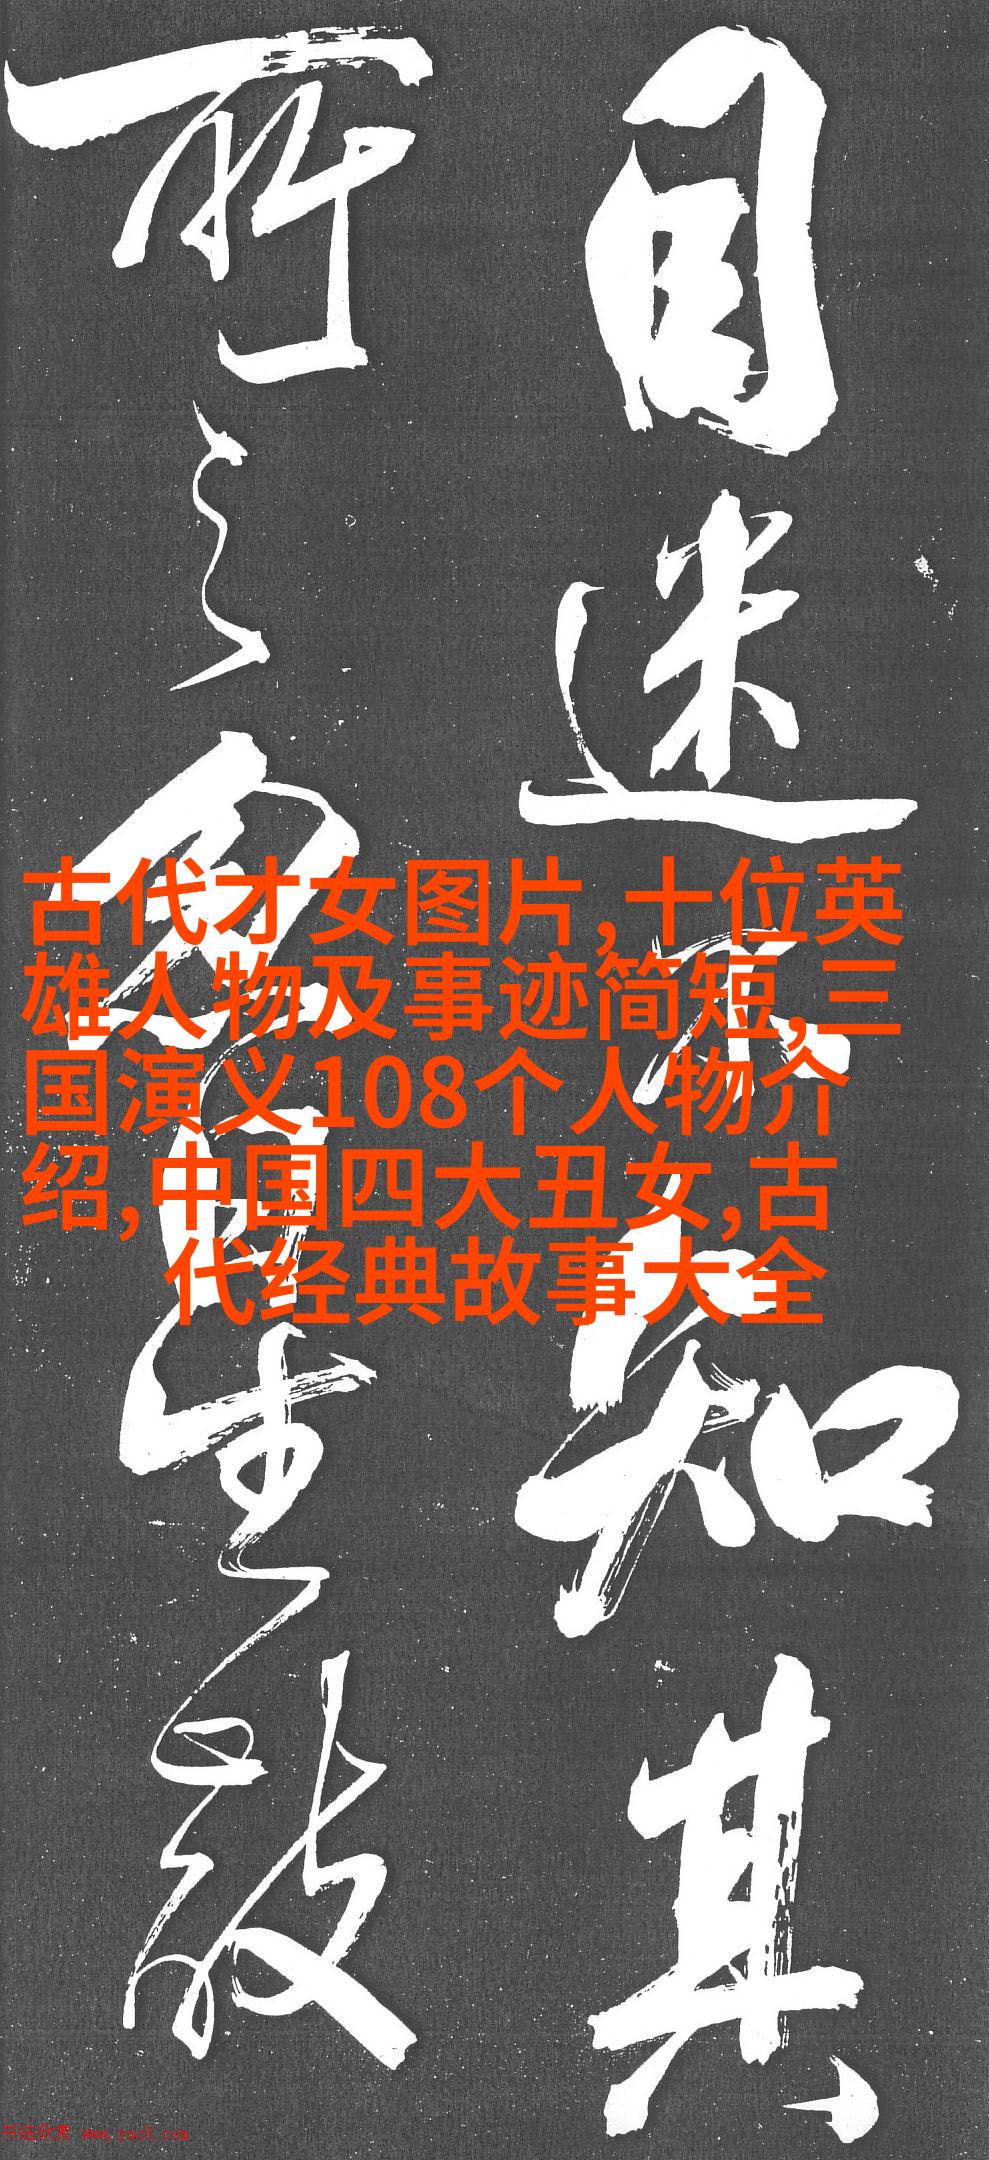 目迷不知其
所之
生
古代才女图片,十位英
雄人物及事迹简短,三
国演义108个人物介
绍,中国四大丑女,古
代经典故事大全
书法欣赏